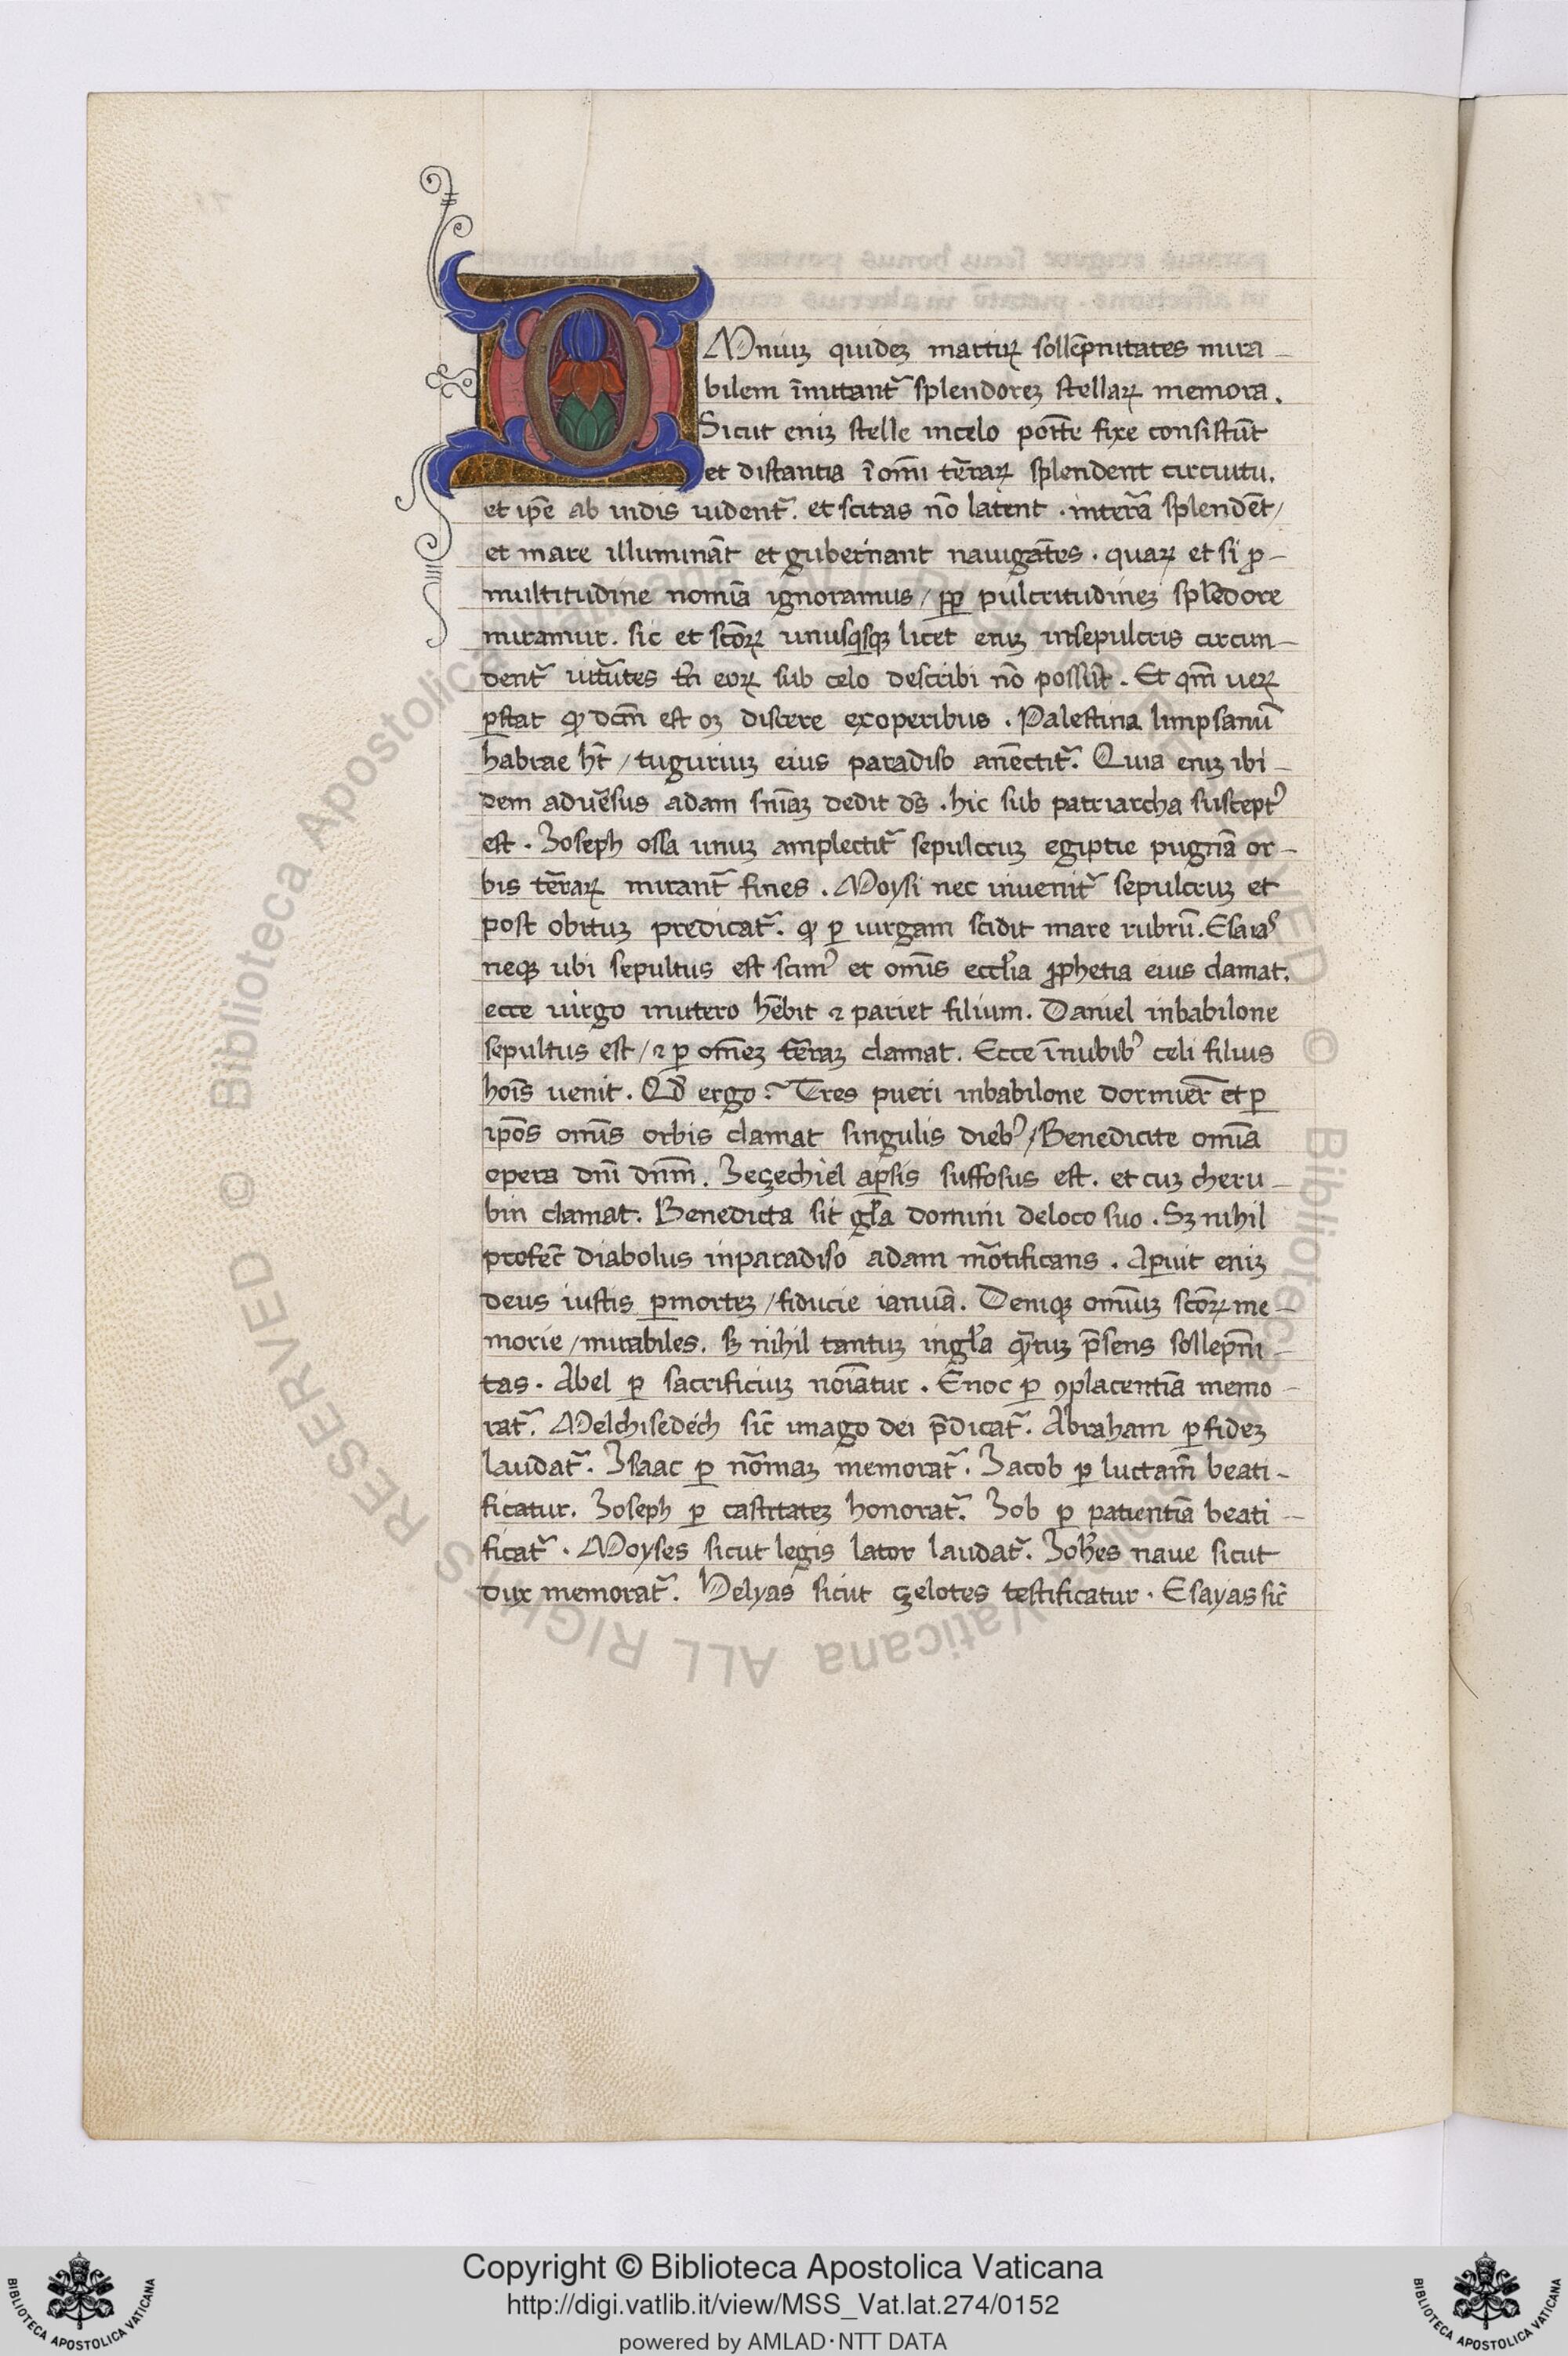 OMniuꝫ quideꝫ martiꝝ sollēpnitates mira-
bilem īmitant᷑ splendoreꝫ stellaꝝ memora.
Sicut eniꝫ stelle incelo fixe consistūt
et distantia ī om̄i terraꝝ splendent circuitu.
et ip̄e ab indis uident᷑. et scitas nō latent . splendēt/
et mare illumināt et gubernant nauigātes . quaꝝ et si ꝓ-
multitudine nomīa ignoramus/ ꝓp pulcritudineꝫ splēdore
miramur. sic et scōꝝ unusqisqꝫ licet eniꝫ insepulcris circun-
dent᷑ uirtutes tn̄ eoꝝ sub celo describi nō possūt. Et qm̄ ueꝝ
ꝑstat qđ dcm̄ est oꝫ discere exoperibus . Palestina limpsanū
habrae hꝫt /tuguriuꝫ eius paradiso anectit᷑. Quia eniꝫ ibi-
dem aduersus adam sn̄iaꝫ dedit ds̄ . hic sub patriarcha susceptꝰ
est . Ioseph ossa unuꝫ amplectit᷑ sepulcruꝫ egiptie pugnā or-
bis terraꝝ mirant᷑ fines . Moysi nec inuenit᷑ sepulcruꝫ et
post obituꝫ predicat᷑. qđ ꝑ uirgam scidit mare rubrū. Esaias
neqꝫ ubi sepultus est scimꝰ et omīs eccl̄ia ꝓphetia eius clamat.
ecce uirgo inutero hēbit ⁊ pariet filium. Daniel inbabilone
sepultus est/ ⁊ ꝑ omēꝫ terraꝫ clamat. Ecce īnubibꝰ celi filius
hoīs uenit . Qđ ergo ? Tres pueri inbabilone dormier̄ et ꝑ
ip̄os omīs orbis clamat singulis diebꝰ/ Benedicite omīa
opera dn̄i dn̄m. Iezechiel apersis suffosus est. et cuꝫ cheru-
bin clamat. Benedicta sit gl̄a domini deloco suo . Sꝫ nihil
profec̄ diabolus inparadiso adam mortificans . Aperuit eniꝫ
deus iustis ꝑmorteꝫ /fiducie ianuā. Deniqꝫ omniuꝫ scōꝝ me-
morie /mirabiles. sꝫ nihil tantuꝫ ingl̄a quantuꝫ p̄sens sollepni-
tas . Abel ꝑ sacrificiuꝫ noīatur . Enoc ꝑ ꝯplacentiā memo-
rat᷑. Melchisedech sic̄ imago dei p̄dicat᷑. Abraham ꝑ fideꝫ
laudat᷑. Isaac ꝑ nōmaꝫ memorat᷑. Iacob ꝑ luctam beati-
ficatur. Ioseph ꝑ castitateꝫ honorat᷑. Iob ꝑ patientiā beati-
ficat᷑ . Moyses sicut legis lator laudat᷑. Ioh̄es naue sicut
dux memorat᷑. Helyas sicut zelotes testificatur . Esayas sic̄
Copyright © Biblioteca Apostolica Vaticana
http://digi.vatlib.it/view/MSS_Vat.lat.274/0152
powered by AMLAD·NTT DATA